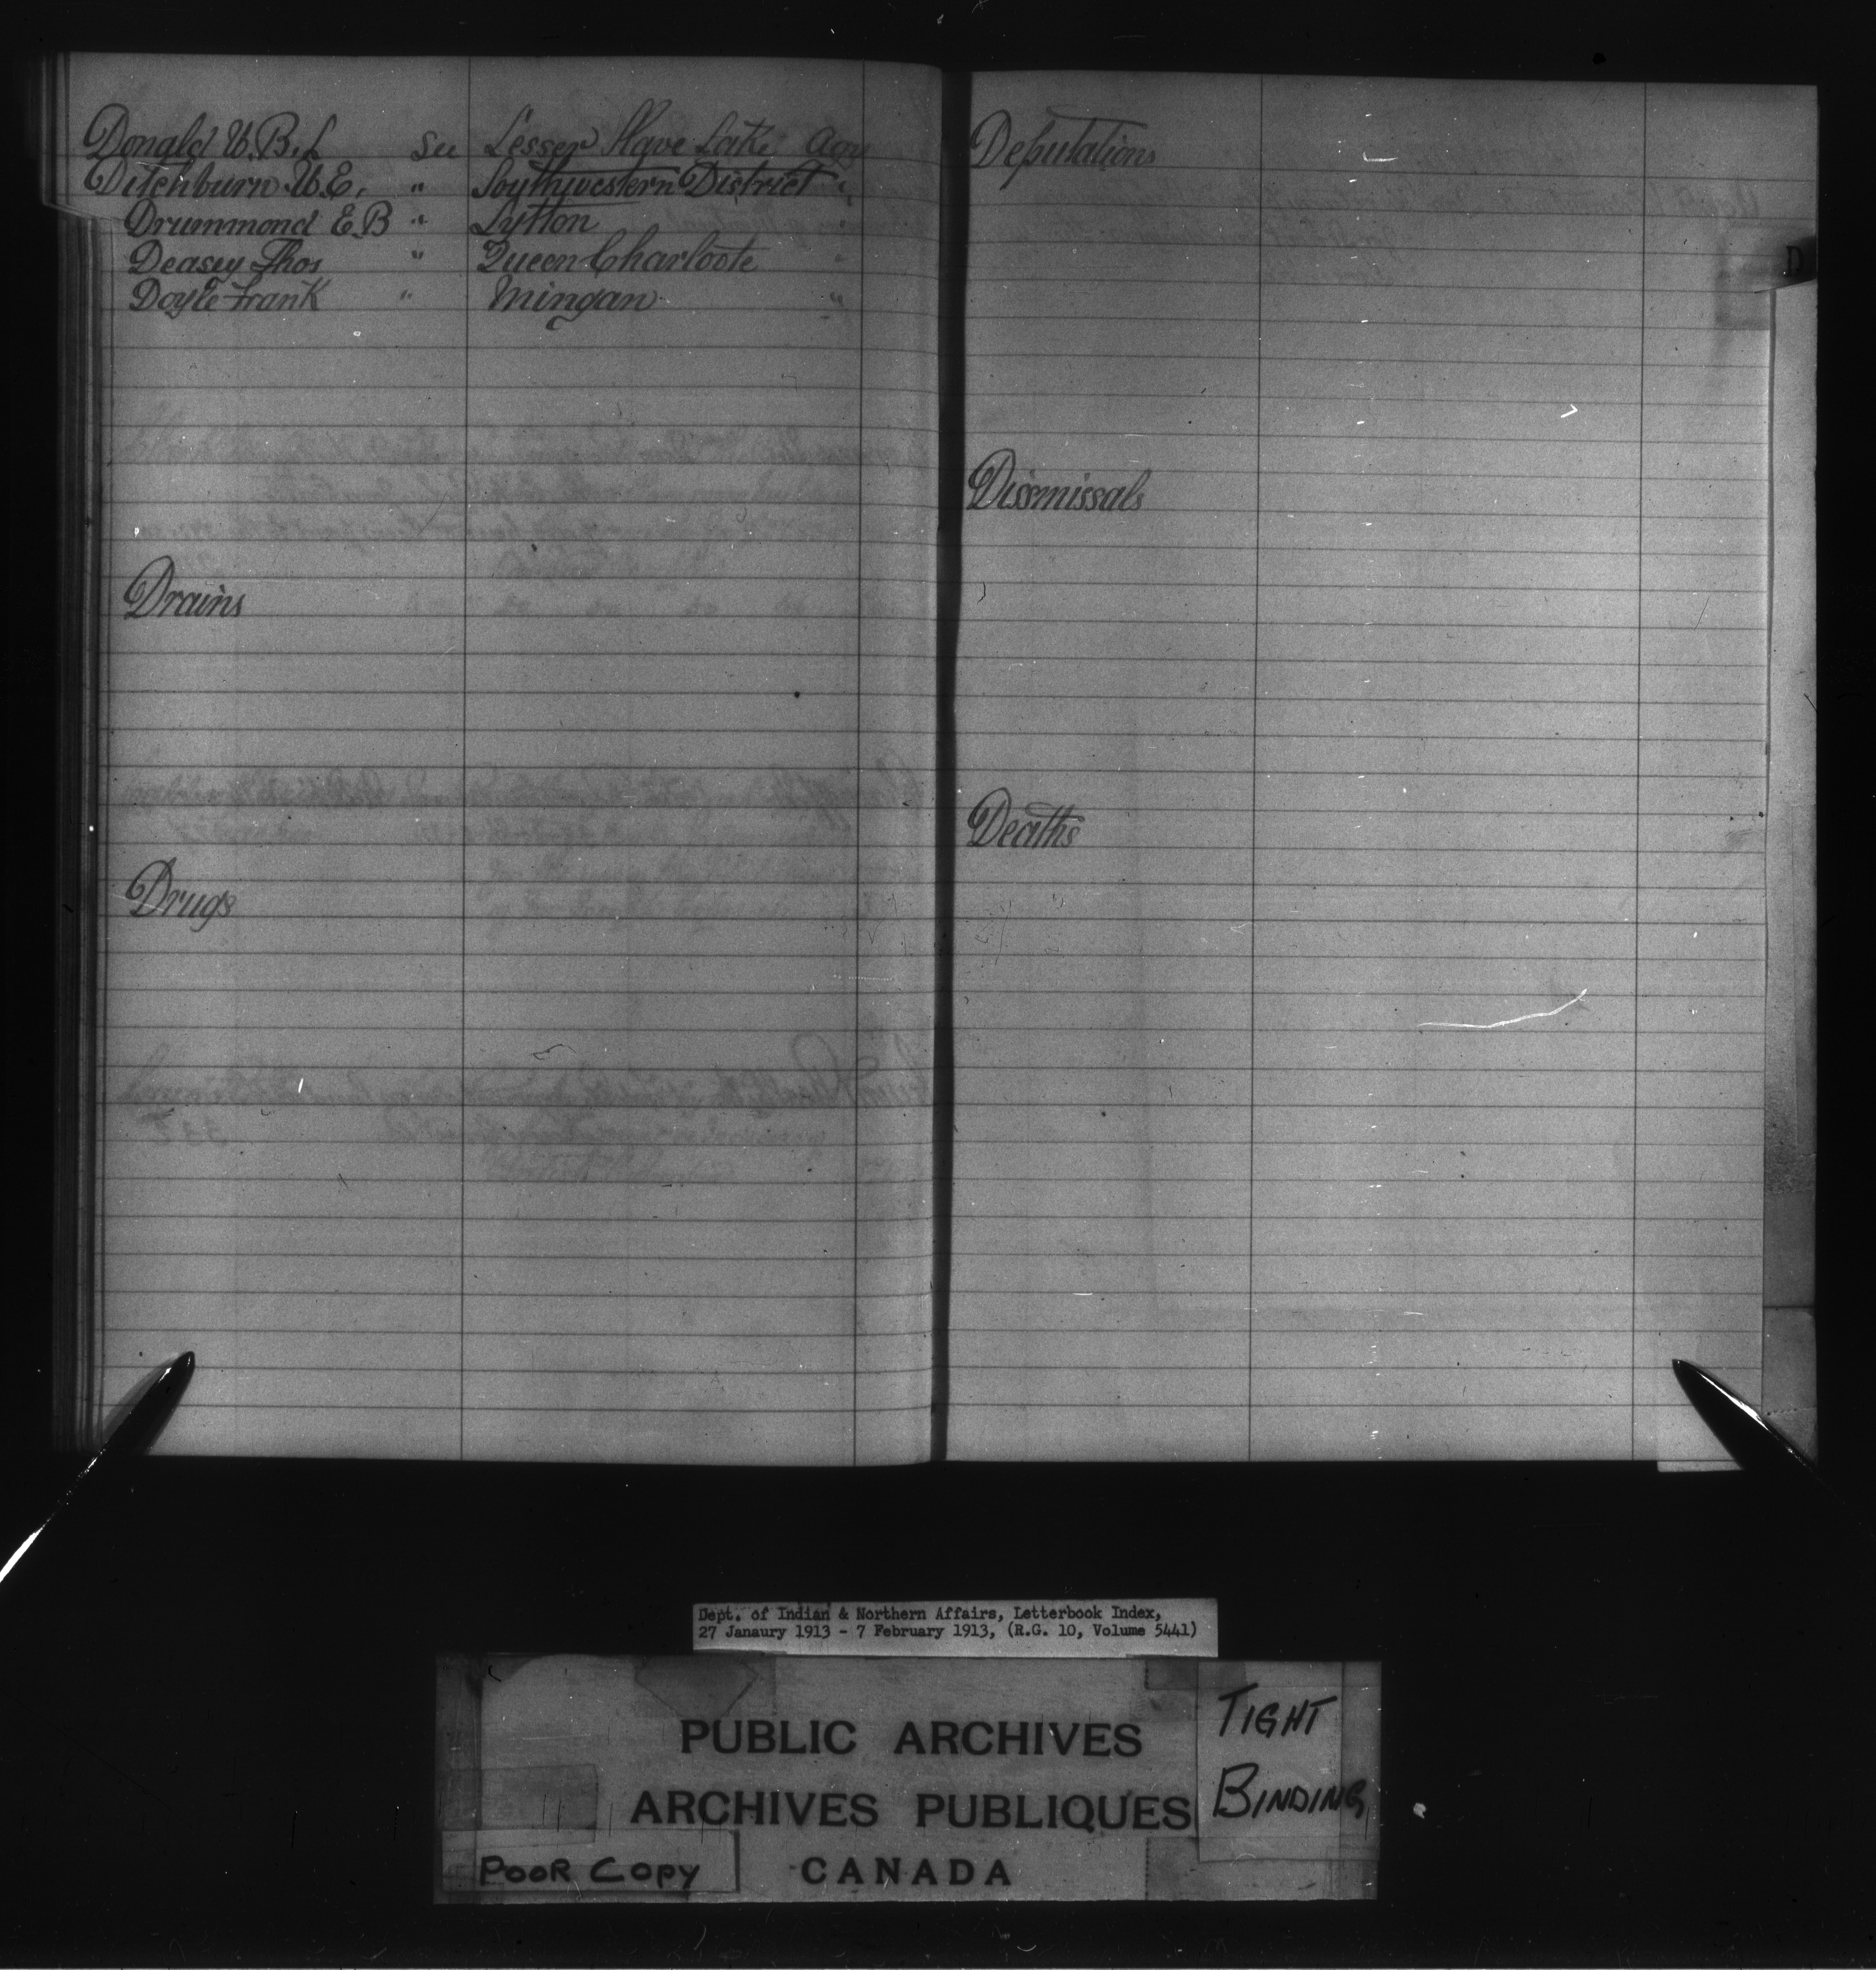 Donald W.B.L See Lesser Slave Lake Agcy
Ditchburn W.E. " Southwestern District "
Drummond E.B " Lytton "
Deasey Thos " Queen Charloote "
Doyle Frank " Mingan "
Drains
Drugs
Deputations
Dismissals
Deaths
D
Dept. of Indian & Northern Affairs, Letterbook Index,
27 Janaury 1913 - 7 February 1913, (R.G. 10, Volume 5441)
PUBLIC ARCHIVES
ARCHIVES PUBLIQUES
CANADA
TIGHT
BINDING
POOR COPY